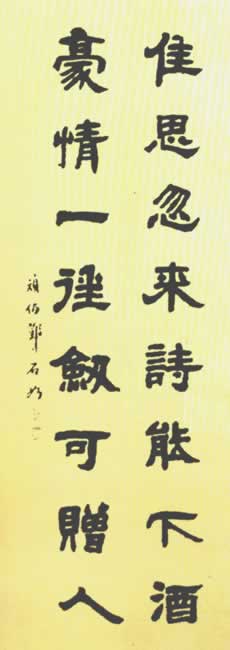 佳思忽來詩能下酒
豪情一往劒可贈人
頑伯鄧石如